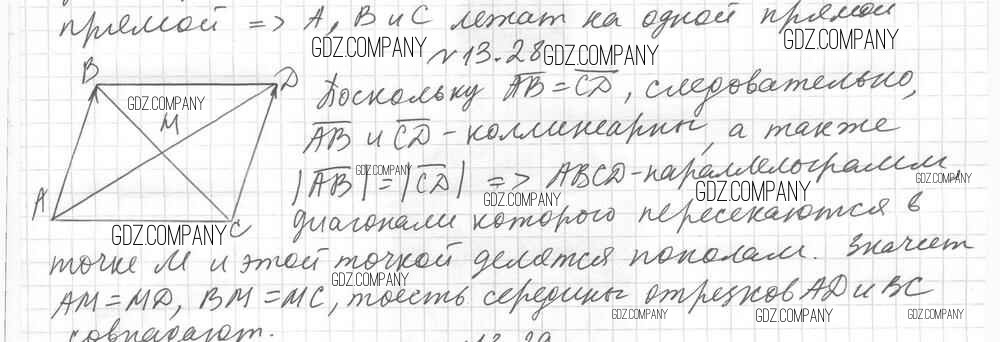 прямой => A, B и C лежат на одной прямой
GDZ.COMPANY
GDZ.COMPANY
№13.28
GDZ.COMPANY
B
D
GDZ.COMPANY
M
A
C
GDZ.COMPANY
Поскольку AB = CD, следовательно,
AB и CD - коллинеарны, а также
GDZ.COMPANY
|AB| = |CD| => ABCD - параллелограмм,
GDZ.COMPANY
GDZ.COMPANY
GDZ.COMPANY
диагонали которого пересекаются в
точке M и этой точкой делятся пополам. Значит
GDZ.COMPANY
AM = MD, BM = MC, тоесть середины отрезков AD и BC
GDZ.COMPANY
GDZ.COMPANY
GDZ.COMPANY
совпадают.
13.29